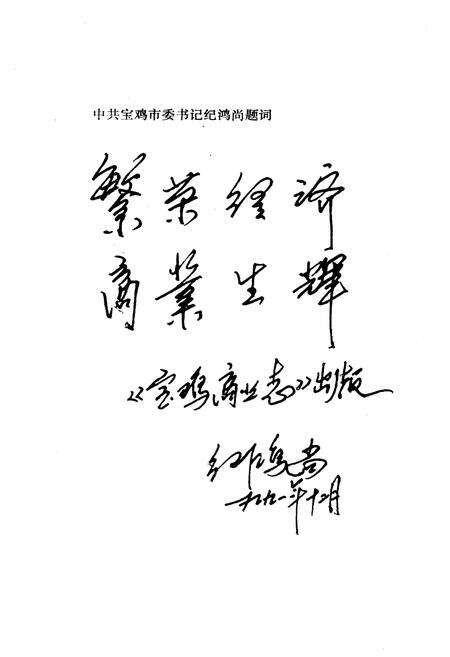 中共宝鸡市委书记纪鸿尚题词
繁荣经济
商業生輝
《宝鸡商业志》出版
纪鸿尚
一九九一年十二月